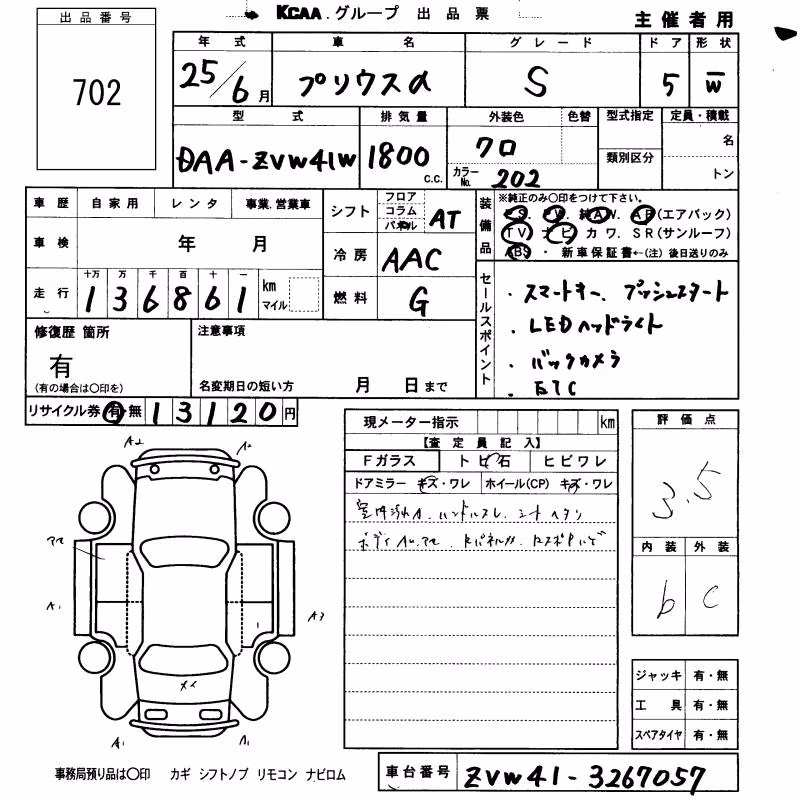 KCAA.グループ 出品票
主催者用
出品番号
702
年式 車名 グレード ドア 形状
25/6月 プリウスα S 5 W
型式 排気量 外装色 色替 型式指定 定員・積載
DAA-ZVW41W 1800 c.c. クロ 名
カラーNo. 202 類別区分 トン
車歴 自家用 レンタ 事業.営業車
車検 年 月
走行 十万 万 千 百 十 一
1 3 6 8 6 1 km マイル
シフト フロア コラム パネル AT
冷房 AAC
燃料 G
装備品 ※純正のみ〇印をつけて下さい。
PS. PW. 純AW. AB(エアバック)
TV ナビ カワ. SR(サンルーフ)
ABS ・ 新車保証書←(注) 後日送りのみ
セールスポイント
・スマートキー、プッシュスタート
・LEDヘッドライト
・バックカメラ
・ETC
修復歴 箇所
有
(有の場合は〇印を)
注意事項
名変期日の短い方 月 日まで
リサイクル券 有・無 1 3 1 2 0 円
現メーター指示 km
【査定員記入】
Fガラス トビ石 ヒビワレ
ドアミラー キズ・ワレ ホイール(CP) キズ・ワレ
室内汚れA.ハンドルスレ.シートヘタリ
評価点
3.5
内装 外装
b C
A2 A2
A1
A3
メイ
A1 A1
ジャッキ 有・無
工具 有・無
スペアタイヤ 有・無
事務局預り品は〇印 カギ シフトノブ リモコン ナビロム
車台番号 ZVW41-3267057